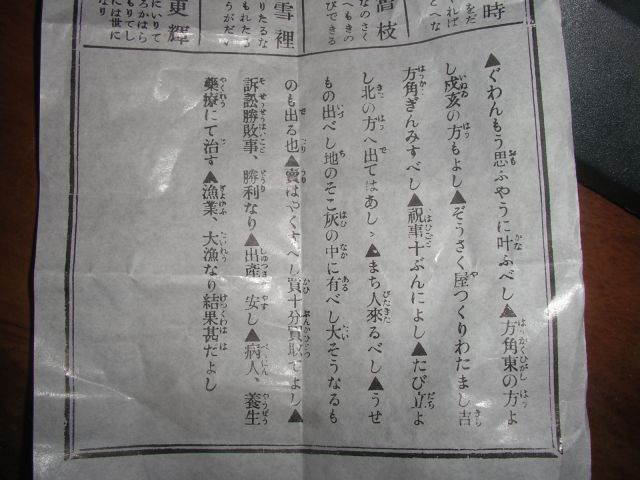 時
をだ
れば
とへな
富枝
なのさく
へもきの
びできる
雪裡
りたるな
もれたる
うがだ
更輝
にいりて
ろかはら
もりてし
には世に
なり
▲ぐわんもう思ふやうに叶ふべし▲方角東の方よ
し戌亥の方もよし▲ぞうさく屋つくりわたまし吉
方角ぎんみすべし▲祝事十ぶんによし▲たび立よ
し北の方へ出てはあしゝ▲まち人來るべし▲うせ
もの出べし地のそこ灰の中に有べし大そうなるも
のも出る也▲賣はやくすべし買十分買取てよし▲
訴訟勝敗事、勝利なり▲出產、安し▲病人、養生
藥療にて治す▲漁業、大漁なり結果甚だよし